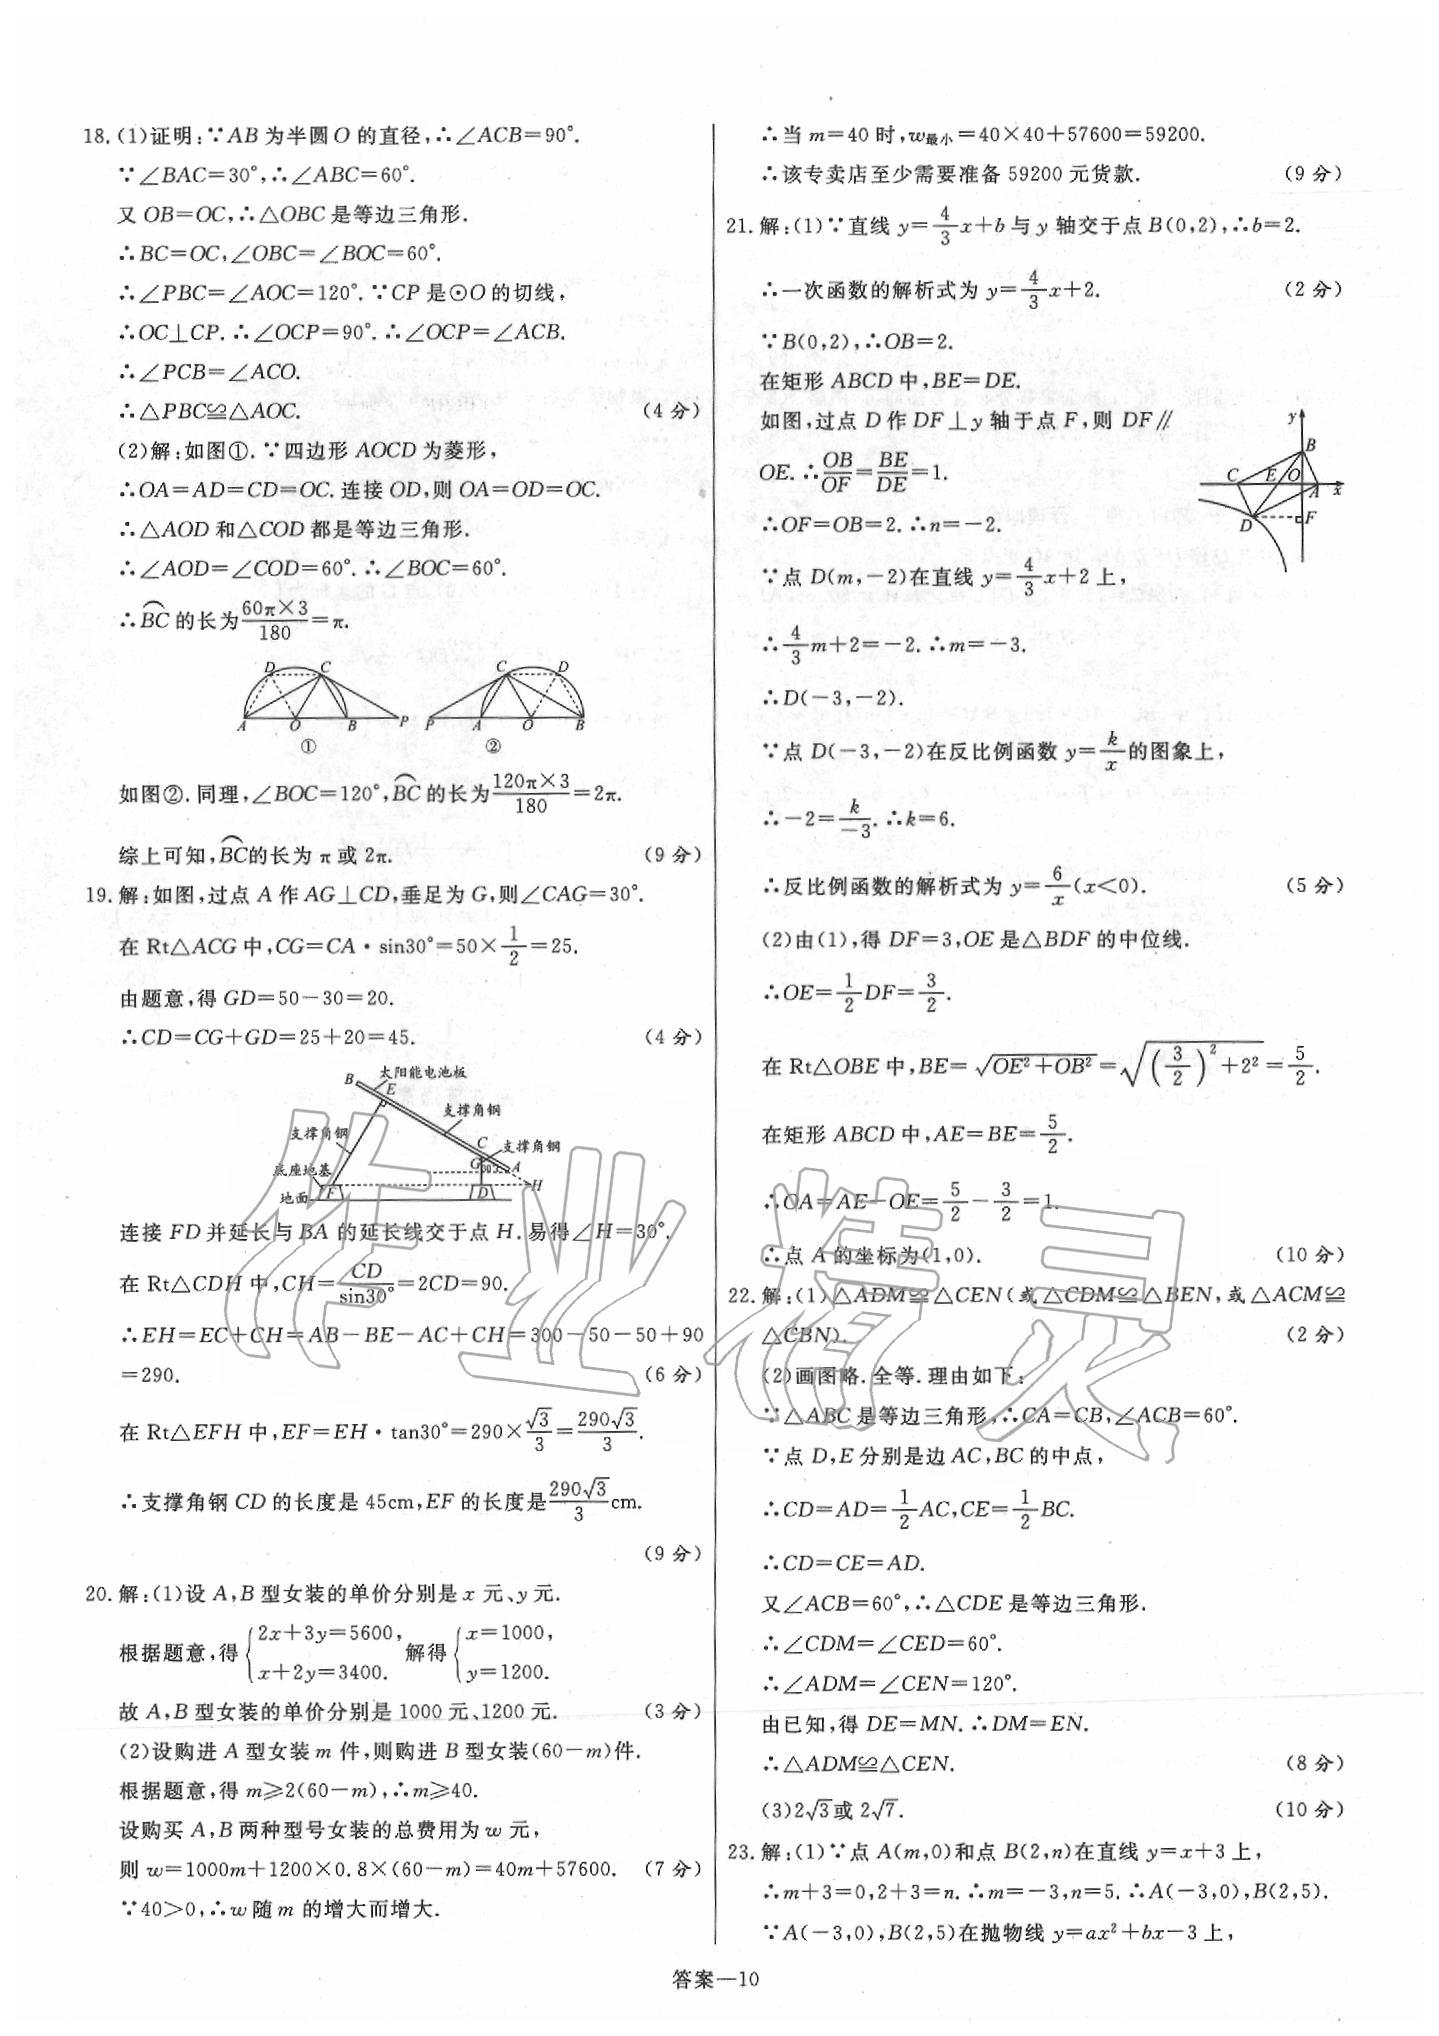 18. (1)证明:∵AB 为半圆 O 的直径,∴∠ACB=90°.
∵∠BAC=30°,∴∠ABC=60°.
又 OB=OC,∴△OBC 是等边三角形.
∴BC=OC,∠OBC=∠BOC=60°.
∴∠PBC=∠AOC=120°.∵CP 是⊙O 的切线,
∴OC⊥CP.∴∠OCP=90°.∴∠OCP=∠ACB.
∴∠PCB=∠ACO.
∴△PBC≌△AOC. (4 分)
(2)解:如图①.∵四边形 AOCD 为菱形,
∴OA=AD=CD=OC.连接 OD,则 OA=OD=OC.
∴△AOD 和△COD 都是等边三角形.
∴∠AOD=∠COD=60°.∴∠BOC=60°.
∴⌒BC 的长为 60π×3/180=π.
D C A O B P
①
C D P A O B
②
如图②.同理,∠BOC=120°,⌒BC 的长为 120π×3/180=2π.
综上可知,⌒BC的长为 π 或 2π. (9 分)
19. 解:如图,过点 A 作 AG⊥CD,垂足为 G,则∠CAG=30°.
在 Rt△ACG 中,CG=CA·sin30°=50×1/2=25.
由题意,得 GD=50-30=20.
∴CD=CG+GD=25+20=45. (4 分)
B E 太阳能电池板
支撑角钢
支撑角钢
C 支撑角钢
底座地基 G 30° A
地面 F D H
连接 FD 并延长与 BA 的延长线交于点 H.易得∠H=30°.
在 Rt△CDH 中,CH=CD/sin30°=2CD=90.
∴EH=EC+CH=AB-BE-AC+CH=300-50-50+90
=290. (6 分)
在 Rt△EFH 中,EF=EH·tan30°=290×√3/3=290√3/3.
∴支撑角钢 CD 的长度是 45cm,EF 的长度是290√3/3cm.
(9 分)
20. 解:(1)设 A,B 型女装的单价分别是 x 元、y 元.
根据题意,得{2x+3y=5600, x+2y=3400. 解得{x=1000, y=1200.
故 A,B 型女装的单价分别是 1000 元、1200 元. (3 分)
(2)设购进 A 型女装 m 件,则购进 B 型女装(60-m)件.
根据题意,得 m≥2(60-m),∴m≥40.
设购买 A,B 两种型号女装的总费用为 w 元,
则 w=1000m+1200×0.8×(60-m)=40m+57600. (7 分)
∵40>0,∴w 随 m 的增大而增大.
∴当 m=40 时,w最小=40×40+57600=59200.
∴该专卖店至少需要准备 59200 元货款. (9 分)
21. 解:(1)∵直线 y=4/3x+b 与 y 轴交于点 B(0,2),∴b=2.
∴一次函数的解析式为 y=4/3x+2. (2 分)
∵B(0,2),∴OB=2.
在矩形 ABCD 中,BE=DE.
如图,过点 D 作 DF⊥y 轴于点 F,则 DF∥
OE.∴OB/OF=BE/DE=1.
y B C E O A x D F
∴OF=OB=2.∴n=-2.
∵点 D(m,-2)在直线 y=4/3x+2 上,
∴4/3m+2=-2.∴m=-3.
∴D(-3,-2).
∵点 D(-3,-2)在反比例函数 y=k/x 的图象上,
∴-2=k/-3.∴k=6.
∴反比例函数的解析式为 y=6/x(x<0). (5 分)
(2)由(1),得 DF=3,OE 是△BDF 的中位线.
∴OE=1/2DF=3/2.
在 Rt△OBE 中,BE=√(OE²+OB²)=√((3/2)²+2²)=5/2.
在矩形 ABCD 中,AE=BE=5/2.
∴OA=AE-OE=5/2-3/2=1.
∴点 A 的坐标为(1,0). (10 分)
22. 解:(1)△ADM≌△CEN(或△CDM≌△BEN,或△ACM≌
△CBN). (2 分)
(2)画图略.全等.理由如下:
∵△ABC 是等边三角形,∴CA=CB,∠ACB=60°.
∵点 D,E 分别是边 AC,BC 的中点,
∴CD=AD=1/2AC,CE=1/2BC.
∴CD=CE=AD.
又∠ACB=60°,∴△CDE 是等边三角形.
∴∠CDM=∠CED=60°.
∴∠ADM=∠CEN=120°.
由已知,得 DE=MN.∴DM=EN.
∴△ADM≌△CEN. (8 分)
(3)2√3或 2√7. (10 分)
23. 解:(1)∵点 A(m,0)和点 B(2,n)在直线 y=x+3 上,
∴m+3=0,2+3=n.∴m=-3,n=5.∴A(-3,0),B(2,5).
∵A(-3,0),B(2,5)在抛物线 y=ax²+bx-3 上,
答案—10
作业精灵